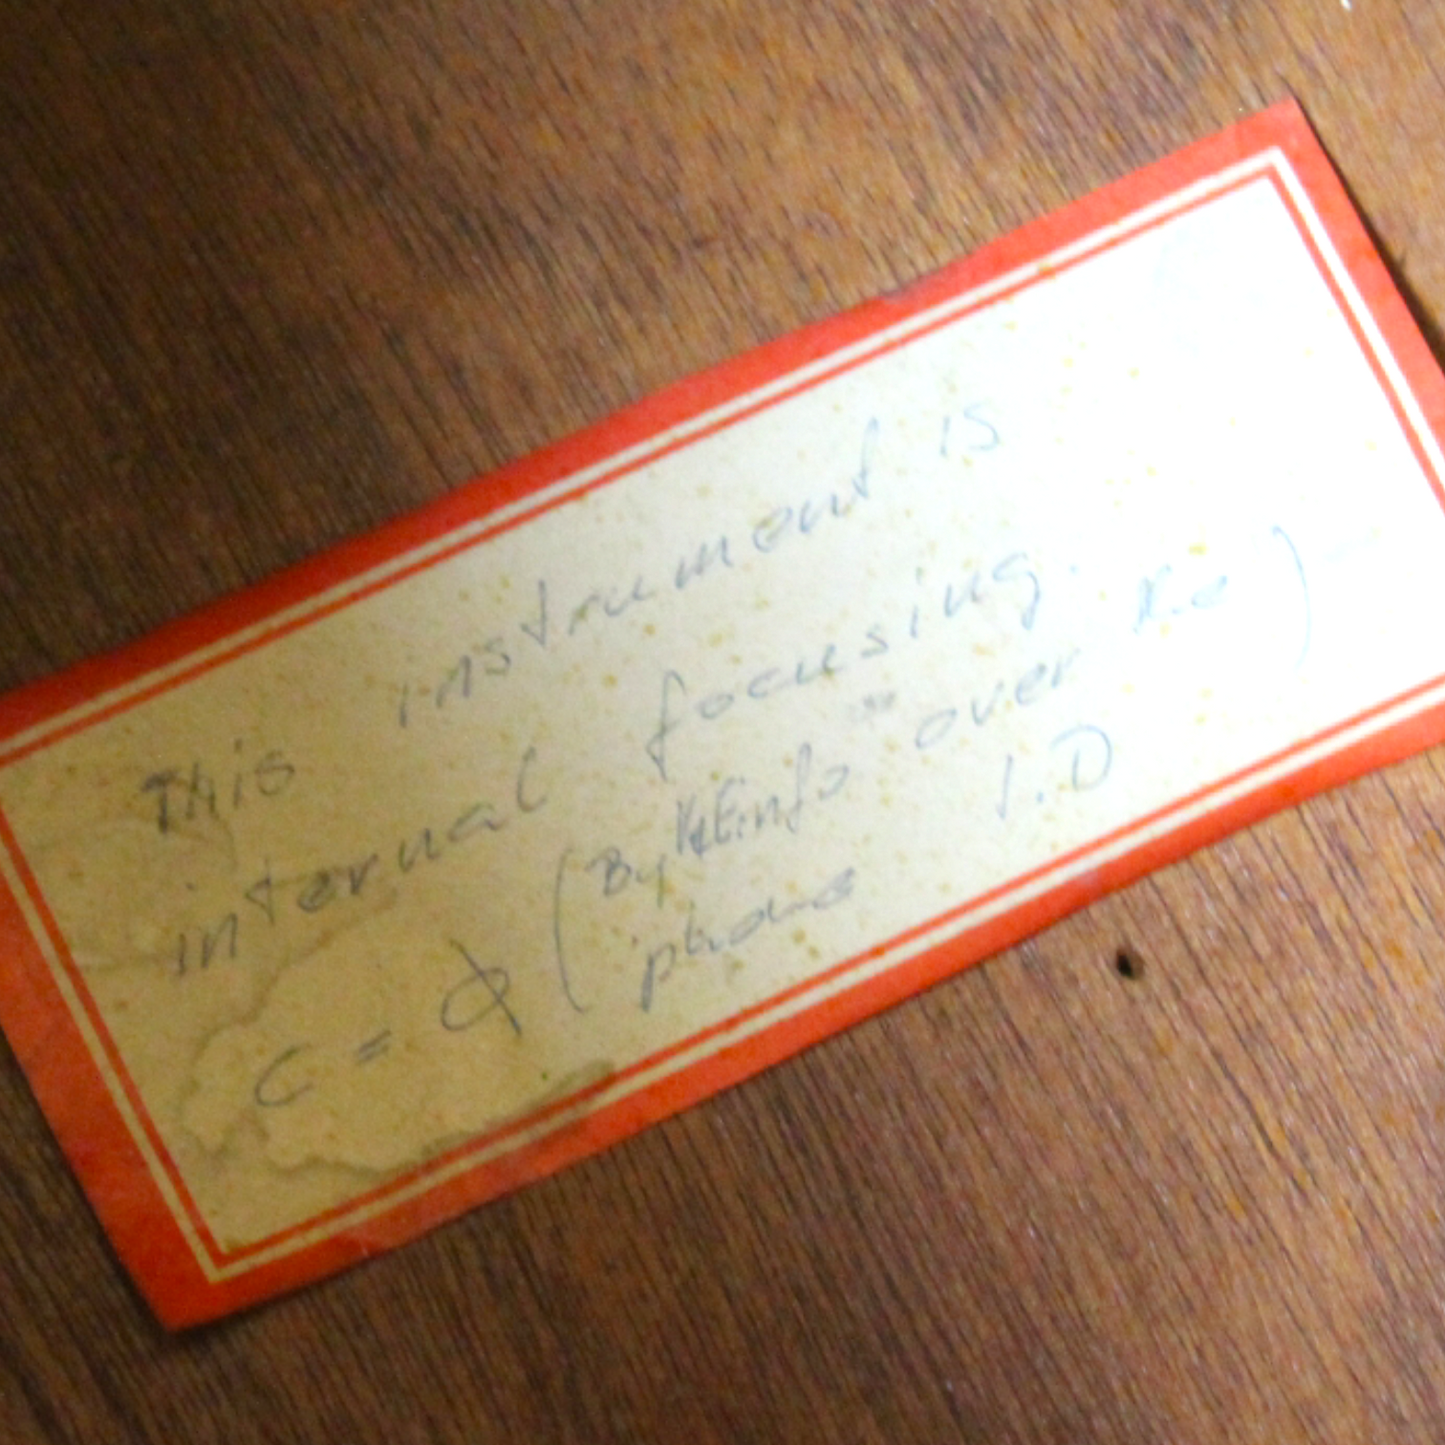 This instrument is
internal focusing.
C = ϕ (By K&E info over the)
phone J.D